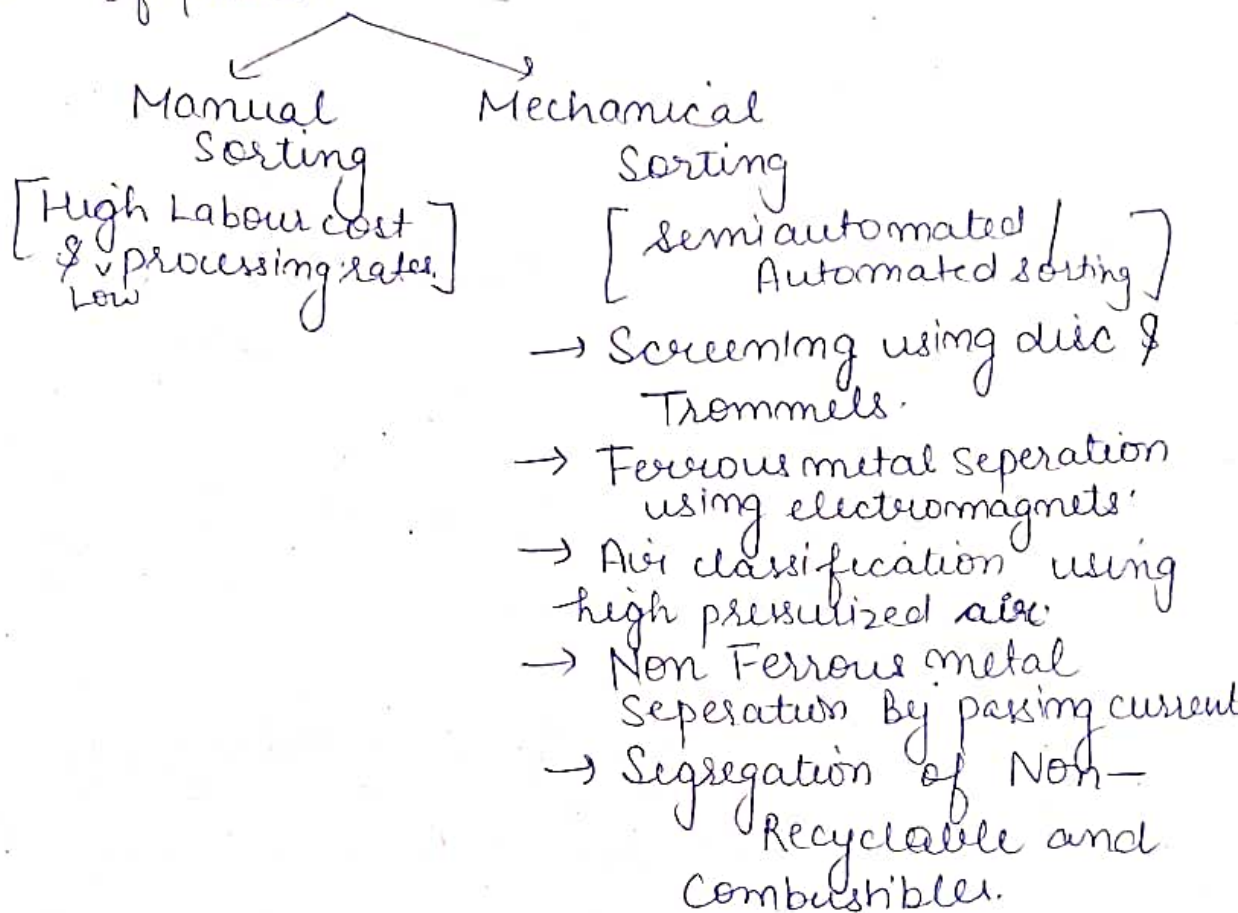 of
Manual
Sorting
[High Labour cost
& Low processing rates.]
Mechanical
Sorting
[semiautomated /
Automated sorting]
→ Screening using disc &
Trommels.
→ Ferrous metal seperation
using electromagnets.
→ Air classification using
high pressurized air.
→ Non Ferrous metal
Seperation By passing current
→ Segregation of Non-
Recyclable and
Combustibles.